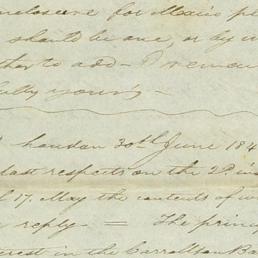 enclosure for Mexico pl
should be one, or by w
to add - I remain
fully yours -
London 30th June 184
last respects on the 2d. in
17. May the contents of w
reply. = The prin
terest in the Carrollton Ba